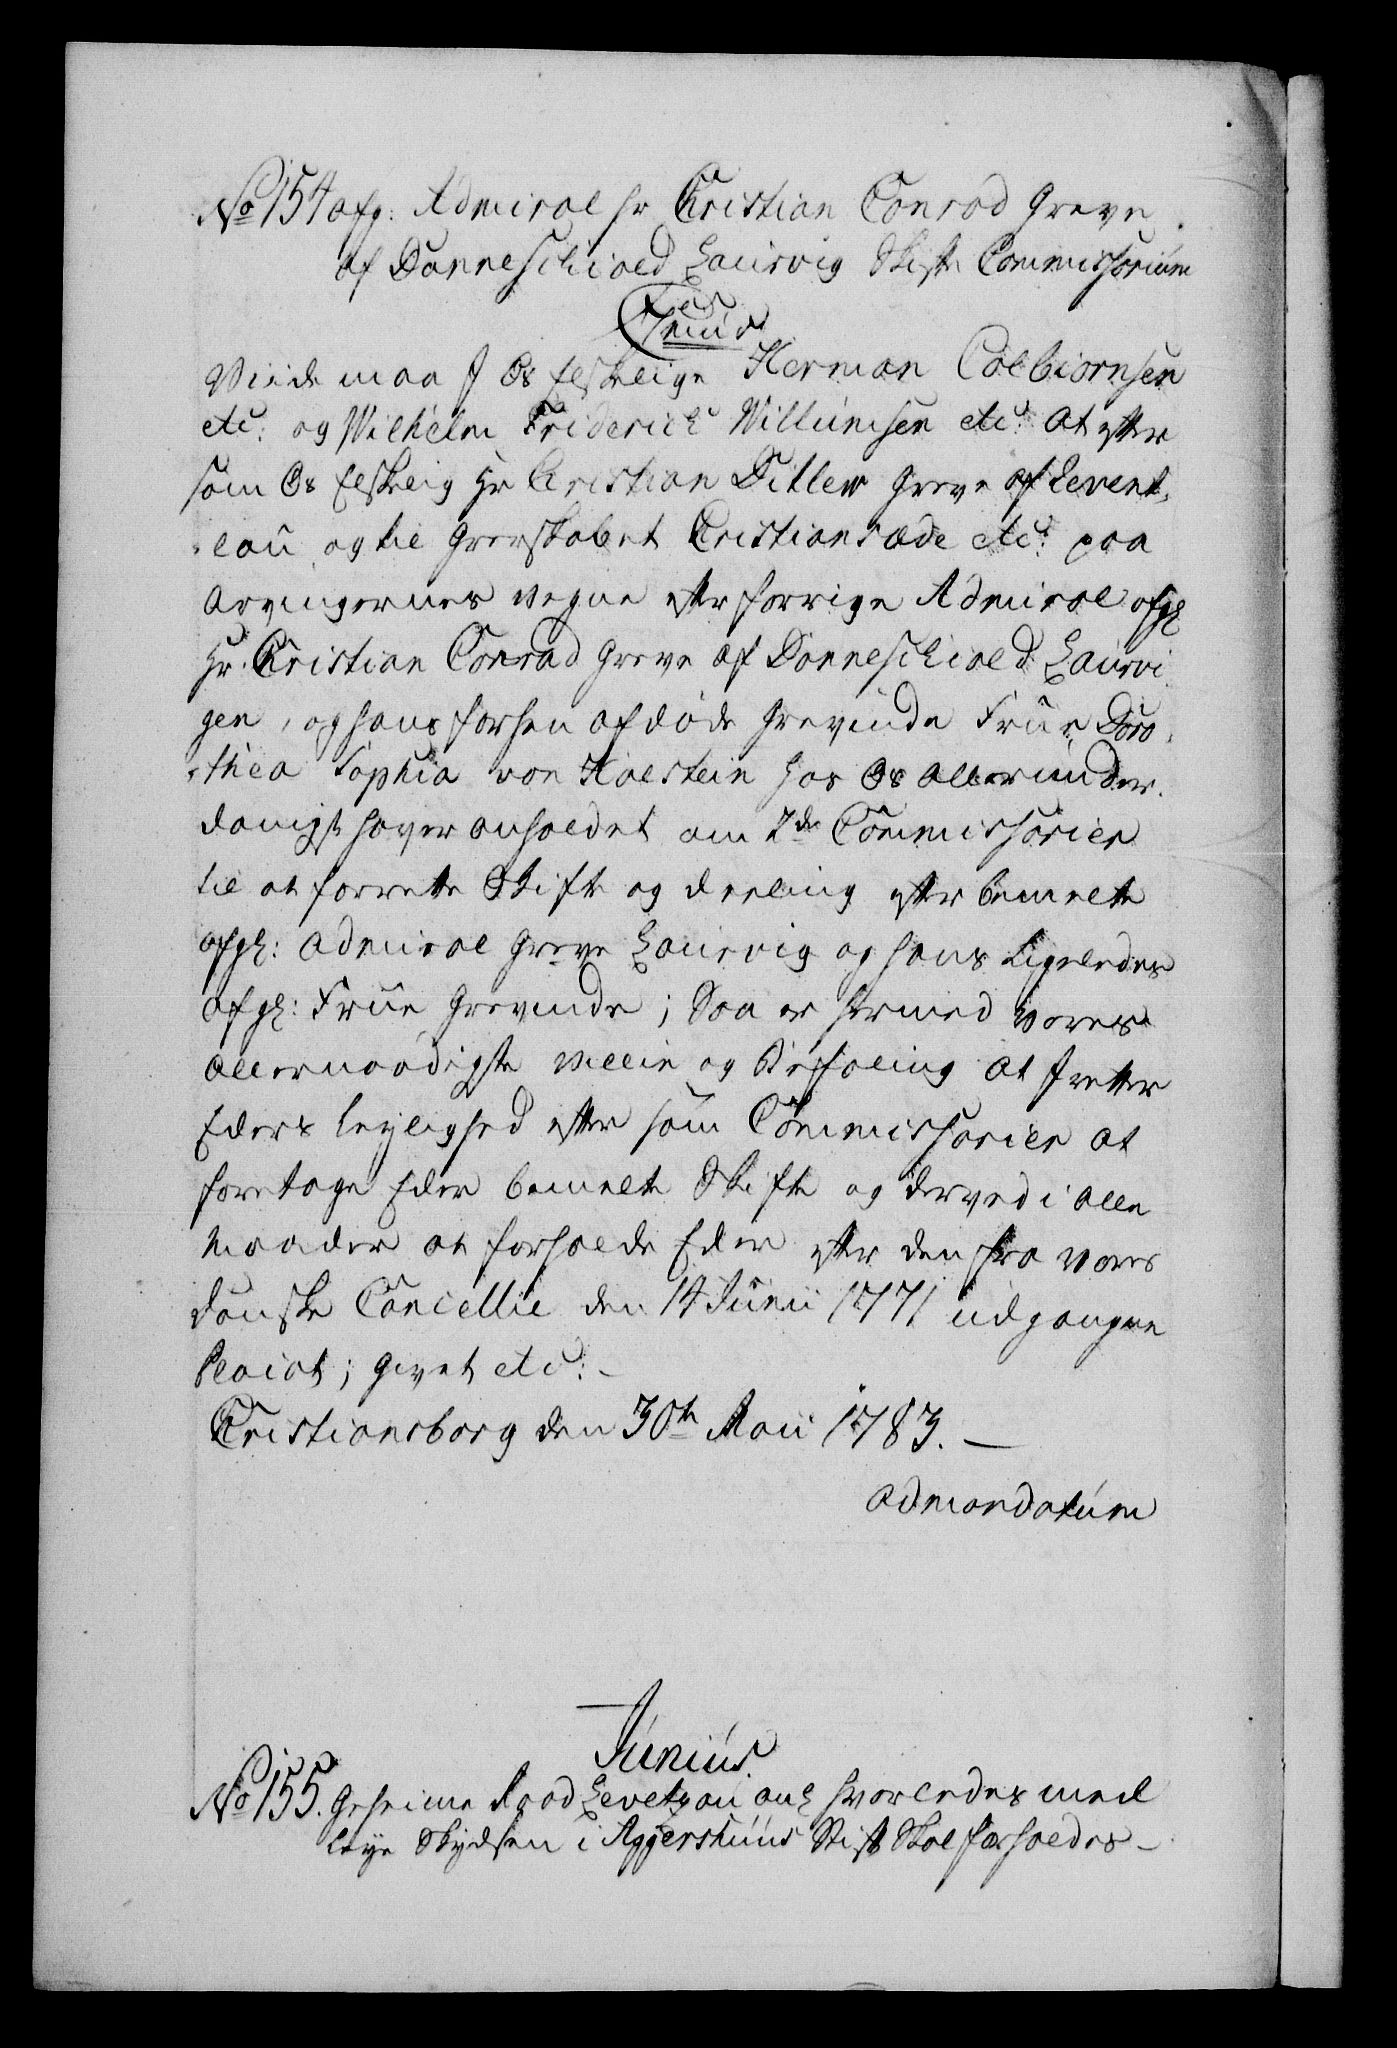 No 154 afg: Admiral Hr Christian Conrad Greve
af Danneschiold Laurvig Skifte Commissorium
C 7mus
Viide maa I Os Elskelige Herman Colbiørnsen
etc: og Wilhelm Friderich Willumsen etc: At efter
som Os Elskelig Hr Christian Ditlew Greve af Revent-
-lau og til Grevskabet Christiansæde etc: paa
Arvingernes vegne efter forrige Admiral afgl
Hr. Christian Conrad Greve af Danneschiold Laurvi
gen, og hans forhen afdøde Grevinde Frue Doro-
-thea Sophia von Holstein hos Os allerunder-
danigst haver anholdet om 2de Commissarier
til at forrette Skifte og Deeling efter bemelte
afgl: Admiral Greve Laurvig og hans Ligeledes
afgl: Frue Grevinde; Saa er hermed Vores
allernaadigste Villie og Befaling At I retter
Eders Leylighed efter som Commissarier at
foretage Eder bemelte Skifte og derved i alle
Maader at forholde Eder efter den fra Vores
danske Cancellie den 14 Junii 1771 udgangne
Placat; Givet etc: -
Christiansborg den 30te Maii 1783. —
admandatum
Junius.
No 155. Geheime Raad Levetzau anl hvorledes med
Leye Skydsen i Aggershuus Stift Skal forholdes -